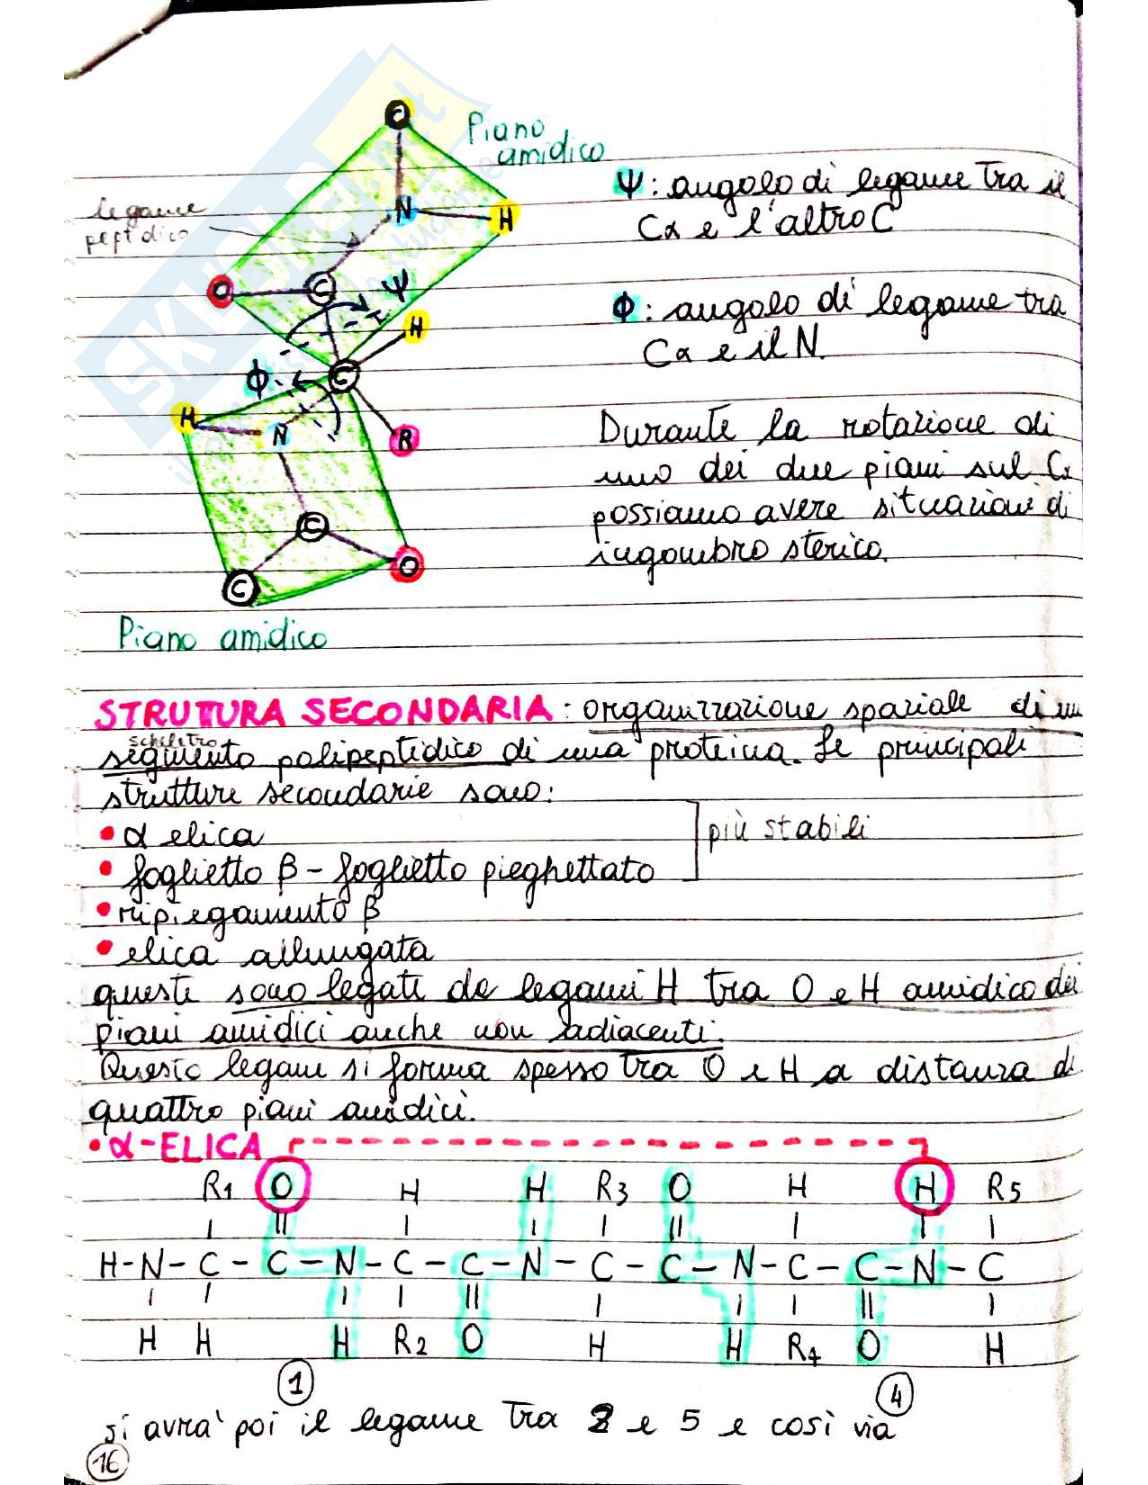 Piano
amidico
legame
peptidico
C
N
H
O
C
Ψ
H
ϕ
C
H
N
R
C
C
O
Piano amidico
Ψ: angolo di legame tra il
Cα e l'altro C
ϕ: angolo di legame tra
Cα e il N.
Durante la rotazione di
uno dei due piani sul Cα
possiamo avere situazioni di
ingombro sterico.
STRUTURA SECONDARIA: organizzazione spaziale di un
scheletro
segmento polipeptidico di una proteina. Le principali
strutture secondarie sono:
• α elica
• foglietto β - foglietto pieghettato
più stabili
• ripiegamento β
• elica allungata
queste sono legate da legami H tra O e H amidico dei
piani amidici anche non adiacenti.
Questo legame si forma spesso tra O e H a distanza di
quattro piani amidici.
• α-ELICA
R1 O H H R3 O H H R5
H-N-C-C-N-C-C-N-C-C-N-C-C-N-C
H H H R2 O H H R4 O H
1 4
si avra' poi il legame tra 2 e 5 e così via
16
SKUOLA.net